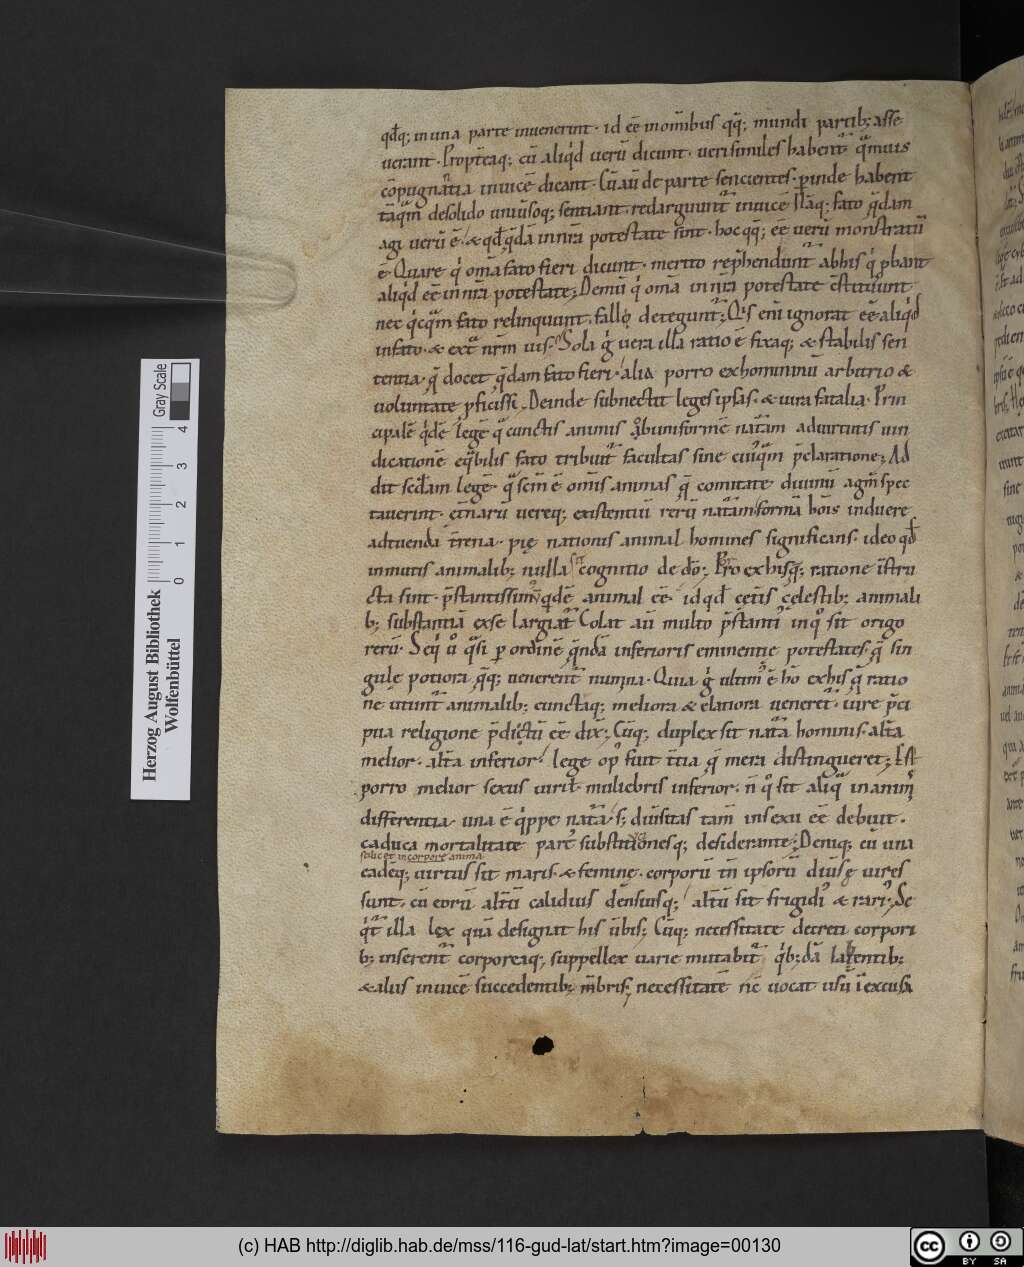 qđq; in una parte invenerint · id eē in omībus qq̄; mundi partib; asse
verant · Propt̄eaq; cū aliqd verū dicunt · verisimiles habent̄ q̄mvis
cōpugnantia invicē dicant · Cū aū de parte sencientes · perinde habent
tāq̄m de solido univ̄soq; sentiant · redarguunt̄ invicē Nāq; fato q̄dam
agi verū ē · & qđ q̄dā in nr̄a potestate sint · hoc qq; eē verū monstratū
ē Quare q' om̄a fato fieri dicunt · merito rep̄hendunt̄ ab his q' p̄bant
aliq'd eē in nr̄a potestate; Demū q' om̄a in nr̄a potestate c̄stituunt
nec q'cq̄m fato relinquunt · fallȩ deteguntur; Q's eni ignorat eē aliq'd
in fato · & ext̄ nr̄m vis · Sola g' vera illa ratio ē fixaq; & stabilis sen
tentia · q̄ docet q̄dam fato fieri · alia porro ex hominum arbitrio &
voluntate p̄ficisci Deinde subnectit leges ipsas · & iura fatalia · Prin
cipalē q'dē legē q̄ cunctis animis q̊b; uniformē nat̄am ad virtutis vin
dicationē eq̄bilis fato tribuit̄ facultas sine cui'q̄m p̄claratione; Ad
dit scđam legē · q̄ scm̄ ē om̄is animas q̄ comitate divinū agm̄ spec
taverint · ēt̄narū vereq; existentiū rerū nat̄am · formā hōis induere
ad tuenda t̄rena · pię nationis animal homines significans · ideo qđ
in mutis animalib; nulla sit cognitio de dō; Pro ex hisq̄; ratione īstru
cta sint · p̄stantissimū q̄dē animal eē · id qđ cet̄is cęlestib; animali
b; substantiā ex se largiat̄ Colat aū multo p̄stanti' in q̊ sit origo
rerū · Seq' ů q̄si p ordinē q̄nda inferioris eminentie potestates · q̄ sin
gulę potiora q̄q; venerent̄ numina · Quia g' ultim' ē hō ex his q̄ ratio
ne utunt̄ animalib; cunctaq; meliora & elatiora veneret̄ · iure p̄ci
pua religione p̄dictū eē dix̄; Cūq; duplex sit nat̄a hominis · alt̄a
melior · alt̄a inferior · lege op' fuit t̄tia q̄ mera distingueret; Est
porro melior sexus virił muliebris inferior · n̄ q̊ sit aliq̄ in animis
differentia una ē q'ppe nat̄a · s; div̄sitas tam̄ in sexu eē debuit ·
caduca mortalitate parē substitutionesq; desiderante; Deniq; cū una
scilicet in corpore anima
eadēq; virtus sit maris · & femine · corporū tn̄ ipsorū div̄sȩ vires
sunt · cū eorū alt̄ū calidius dēnsiusq; alt̄ū sit frigidi' & rari' · Se
q't̄ illa lex quā designat his v̄bis; Cūq; necessitate decreti corpori
b; inserent̄ corporeaq; suppellex varie mutabit̄ q'b;dā labentib;
& aliis in vicē succedentib; m̄bris; necessitatē n̄c vocat usū īexcusa
Herzog August Bibliothek
Wolfenbüttel
Gray Scale
0 1 2 3 4
(c) HAB http://diglib.hab.de/mss/116-gud-lat/start.htm?image=00130
cc BY SA